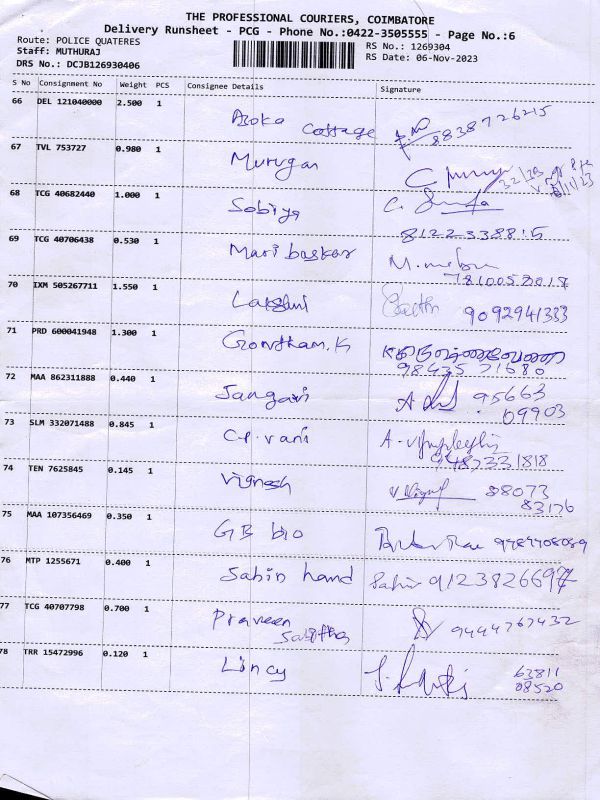 THE PROFESSIONAL COURIERS, COIMBATORE
Delivery Runsheet - PCG - Phone No.:0422-3505555 - Page No.:6
Route: POLICE QUATERES
Staff: MUTHURAJ
DRS No.: DCJB126930406
RS No.: 1269304
RS Date: 06-Nov-2023
S No Consignment No Weight PCS Consignee Details Signature
66 DEL 121040000 2.500 1 Asoka Cottage 8838726215
67 TVL 753727 0.980 1 Murugan
68 TCG 40682440 1.000 1 Sobiya
69 TCG 40706438 0.530 1 Mari baskar 8122338815
70 IXM 505267711 1.550 1 Lakshmi 9092941333
71 PRD 600041948 1.300 1 Gowtham.K
98435 71680
72 MAA 862311888 0.440 1 Jangavi 95663
09903
73 SLM 332071488 0.845 1 C.P. vani
9487331818
74 TEN 7625845 0.145 1 Vignesh 88073
83176
75 MAA 107356469 0.350 1 GB bio
76 MTP 1255671 0.400 1 Sabin hand 9123826697
77 TCG 40707798 0.700 1 Praveen 9444767432
78 TRR 15472996 0.120 1 Lincy 63811
08520